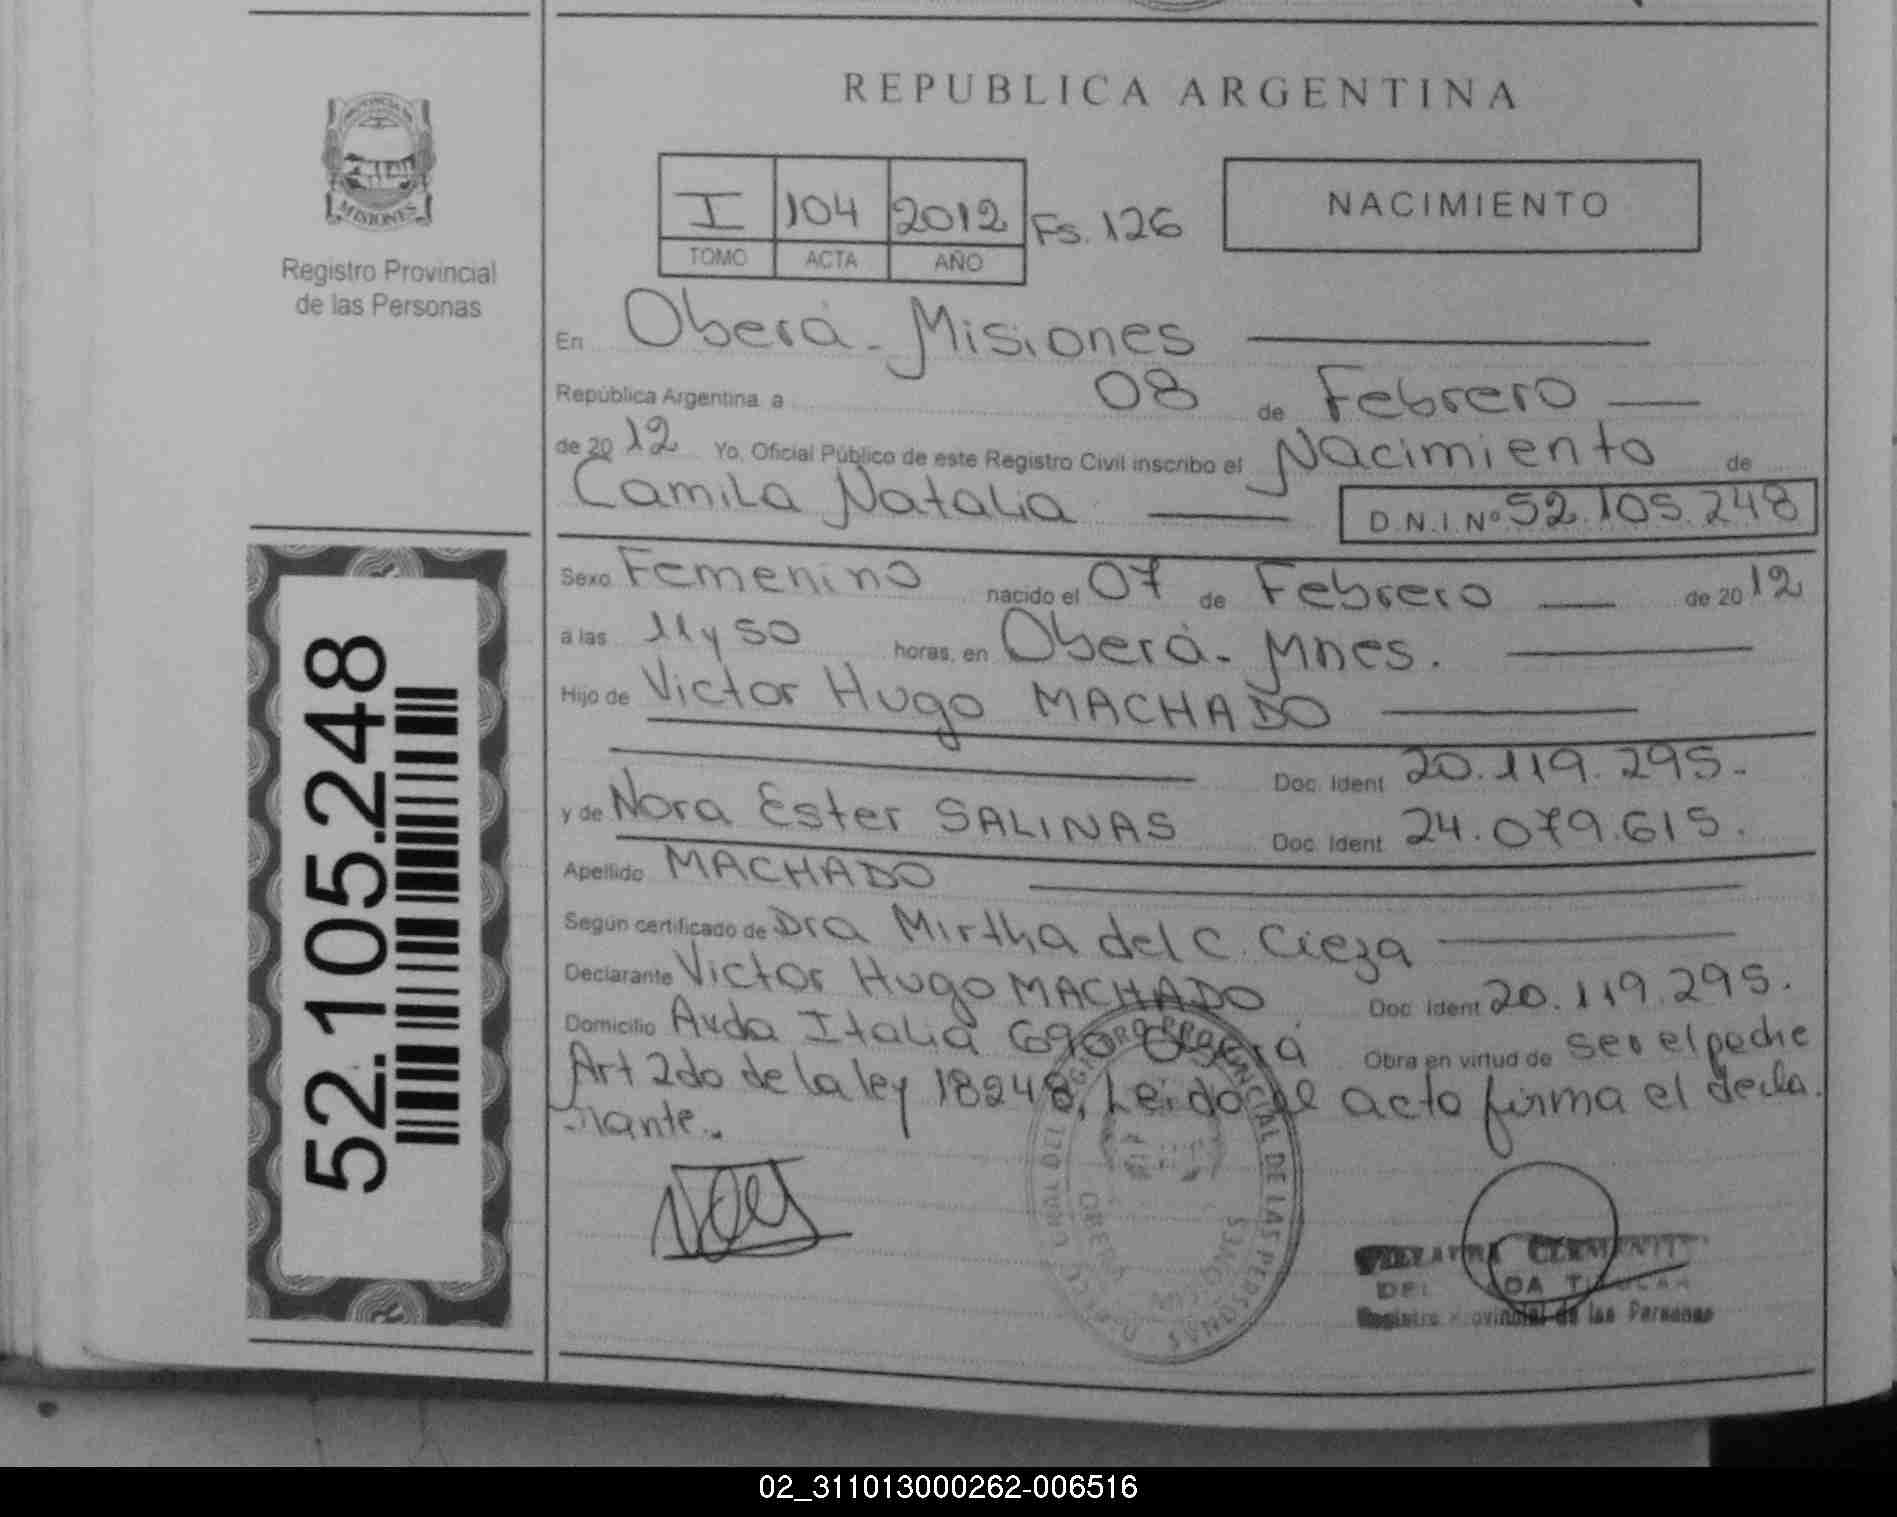 REPUBLICA ARGENTINA
MISIONES
Registro Provincial
de las Personas
I 104 2012 Fs. 126
TOMO ACTA AÑO
NACIMIENTO
En Oberá - Misiones
República Argentina a 08 de Febrero
de 20 12 Yo, Oficial Público de este Registro Civil inscribo el Nacimiento de
Camila Natalia D.N.I.Nº 52.105.248
Sexo Femenino nacido el 07 de Febrero de 20 12
a las 11 y 50 horas, en Oberá - Mnes.
Hijo de Victor Hugo MACHADO
Doc. Ident 20.119.295.
y de Nora Ester SALINAS Doc. Ident 24.079.615.
Apellido MACHADO
Según certificado de Dra Mirtha del C. Cieza
Declarante Victor Hugo MACHADO Doc. Ident 20.119.295.
Domicilio Avda Italia 690 Oberá Obra en virtud de ser el padre
Art 2do de la ley 18248, Leido el acto firma el decla
rante.
52.105.248
REGISTRO PROVINCIAL DE LAS PERSONAS
OBERA
MISIONES
Registro Provincial de las Personas
02_311013000262-006516